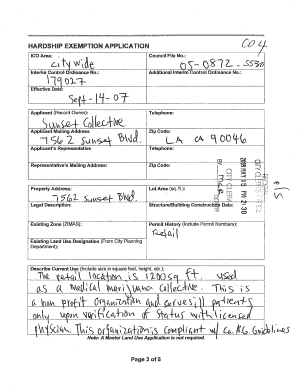 CD 4
HARDSHIP EXEMPTION APPLICATION
ICO Area: Council File No.:
city wide 05-0872-S530
Interim Control Ordinance No.: Additional Interim Control Ordinance No.:
179027
Effective Date:
Sept-14-07
Applicant (Record Owner):
Sunset Collective
Applicant Mailing Address Zip Code:
7562 Sunset Blvd. LA CA 90046
Applicant's Representative Telephone:
Representative's Mailing Address: Zip Code:
Telephone:
CITY CLERK
2008 MAY 15 PM 2:30
BY
CITY CLERK
Property Address: Lot Area (sq. ft.):
7562 sunset Blvd.
Legal Description: Structure/Building Construction Date:
Existing Zone (ZIMAS): Permit History (Include Permit Numbers):
Retail
Existing Land Use Designation (From City Planning
Department):
Describe Current Use (Include size in square feet, height, etc.):
The retail location is 1200 sq ft. used
as a medical marijuana collective. This is
a non profit organization and serves ill patients
only upon varification of status with licensed
physcian. This organization is compliant w/ Ca. A.G. Guidelines
Note: A Master Land Use Application is not required.
Page 3 of 5